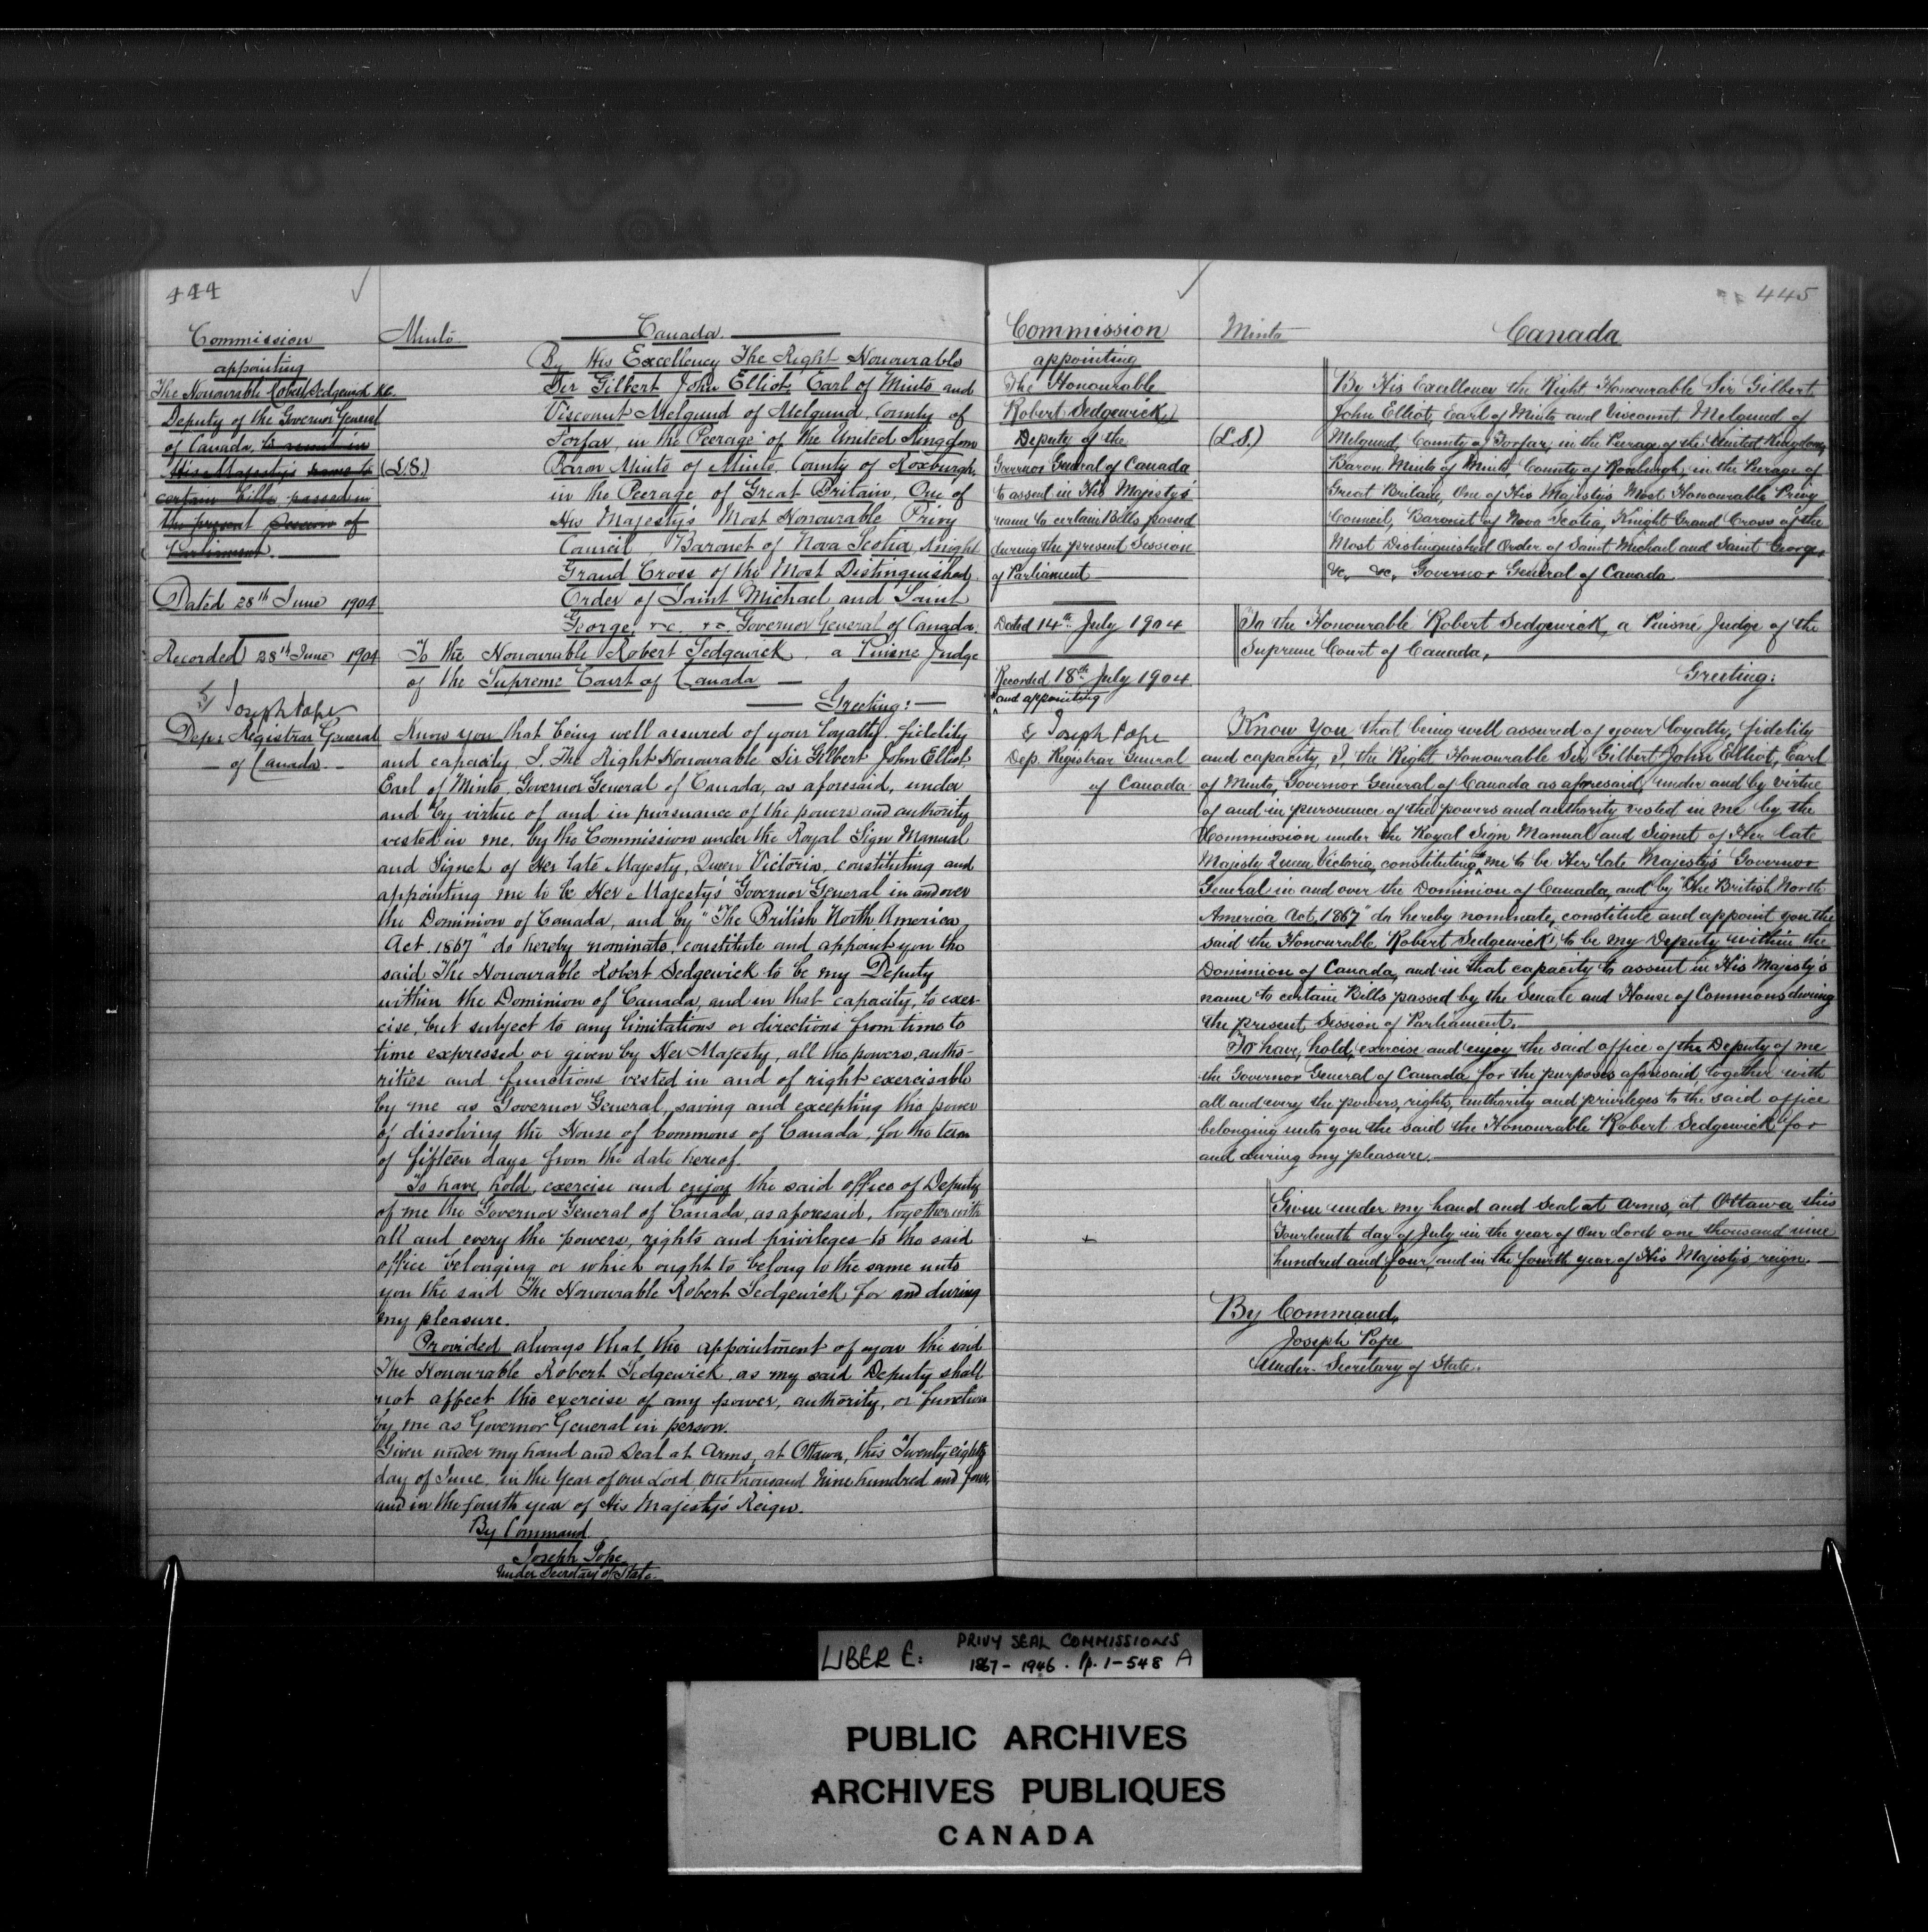 444
Commission
appointing
The Honourable Robert Sedgewick &c.
Deputy of the Governor General
of Canada, to assent in
His Majesty's name to
certain Bills passed in
the present Session of
Parliament.
Dated 28th June 1904
Recorded 28th June 1904
Joseph Pope
Dep: Registrar General
of Canada.
Minto
(L.S.)
Canada.
By His Excellency The Right Honourable
Sir Gilbert John Elliot, Earl of Minto and
Viscount Melgund of Melgund, County of
Forfar, in the Peerage of the United Kingdom
Baron Minto of Minto, County of Roxburgh,
in the Peerage of Great Britain, One of
His Majesty's Most Honourable Privy
Council, Baronet of Nova Scotia, Knight
Grand Cross of the Most Distinguished
Order of Saint Michael and Saint
George, &c. &c. Governor General of Canada.
To the Honourable Robert Sedgewick, a Puisne Judge
of the Supreme Court of Canada —
Greeting: —
Know you that being well assured of your loyalty, fidelity
and capacity, I, The Right Honourable Sir Gilbert John Elliot
Earl of Minto, Governor General of Canada, as aforesaid, under
and by virtue of and in pursuance of the powers and authority
vested in me, by the Commission under the Royal Sign Manual
and Signet of Her late Majesty, Queen Victoria, constituting and
appointing me to be Her Majesty's Governor General in and over
the Dominion of Canada, and by "The British North America
Act 1867" do hereby nominate, constitute and appoint you the
said The Honourable Robert Sedgewick to be my Deputy
within the Dominion of Canada, and in that capacity, to exer-
cise, but subject to any limitations or directions from time to
time expressed or given by Her Majesty, all the powers, autho-
rities and functions vested in and of right exercisable
by me as Governor General, saving and excepting the power
of dissolving the House of Commons of Canada, for the term
of fifteen days from the date hereof.
To have, hold, exercise and enjoy the said office of Deputy
of me the Governor General of Canada, as aforesaid, together with
all and every the powers, rights and privileges to the said
office belonging or which ought to belong to the same unto
you the said The Honourable Robert Sedgewick for and during
my pleasure.
Provided always that the appointment of you the said
The Honourable Robert Sedgewick as my said Deputy shall
not affect the exercise of any power, authority, or function
by me as Governor General in person.
Given under my hand and Seal at Arms, at Ottawa, this Twenty eighth
day of June, in the Year of our Lord, One thousand Nine hundred and four,
and in the fourth year of His Majesty's Reign.
By Command
Joseph Pope
Under Secretary of State.
445
Commission
appointing
The Honourable
Robert Sedgewick,
Deputy of the
Governor General of Canada
to assent in His Majesty's
name to certain Bills passed
during the present Session
of Parliament
Dated 14th July 1904
Recorded 18th July 1904
"and appointing
Joseph Pope
Dep. Registrar General
of Canada
Minto
(L.S.)
Canada
By His Excellency the Right Honourable Sir Gilbert
John Elliot, Earl of Minto and Viscount Melgund of
Melgund, County of Forfar, in the Peerage of the United Kingdom,
Baron Minto of Minto, County of Roxburgh, in the Peerage of
Great Britain, One of His Majesty's Most Honourable Privy
Council, Baronet of Nova Scotia, Knight Grand Cross of the
Most Distinguished Order of Saint Michael and Saint George,
&c., &c., Governor General of Canada.
To the Honourable Robert Sedgewick, a Puisné Judge of the
Supreme Court of Canada,
Greeting:
Know You that being well assured of your loyalty, fidelity
and capacity, I, the Right Honourable Sir Gilbert John Elliot, Earl
of Minto, Governor General of Canada as aforesaid, under and by virtue
of and in pursuance of the powers and authority vested in me by the
Commission under the Royal Sign Manual and Signet of Her late
Majesty Queen Victoria, constituting me to be Her late Majesty's Governor
General in and over the Dominion of Canada, and by "The British North
America Act, 1867" do hereby nominate, constitute and appoint you the
said the Honourable Robert Sedgewick to be my Deputy within the
Dominion of Canada, and in that capacity to assent in His Majesty's
name to certain Bills passed by the Senate and House of Commons during
the present Session of Parliament.
To have, hold, exercise and enjoy the said office of the Deputy of me
the Governor General of Canada for the purposes aforesaid, together with
all and every the powers, rights, authority and privileges to the said office
belonging unto you the said the Honourable Robert Sedgewick for
and during my pleasure.
Given under my hand and Seal at Arms, at Ottawa this
Fourteenth day of July in the year of Our Lord one thousand nine
hundred and four, and in the fourth year of His Majesty's reign.
By Command,
Joseph Pope
Under-Secretary of State.
LIBER E:
PRIVY SEAL COMMISSIONS
1867-1946. Pp. 1-548 A
PUBLIC ARCHIVES
ARCHIVES PUBLIQUES
CANADA